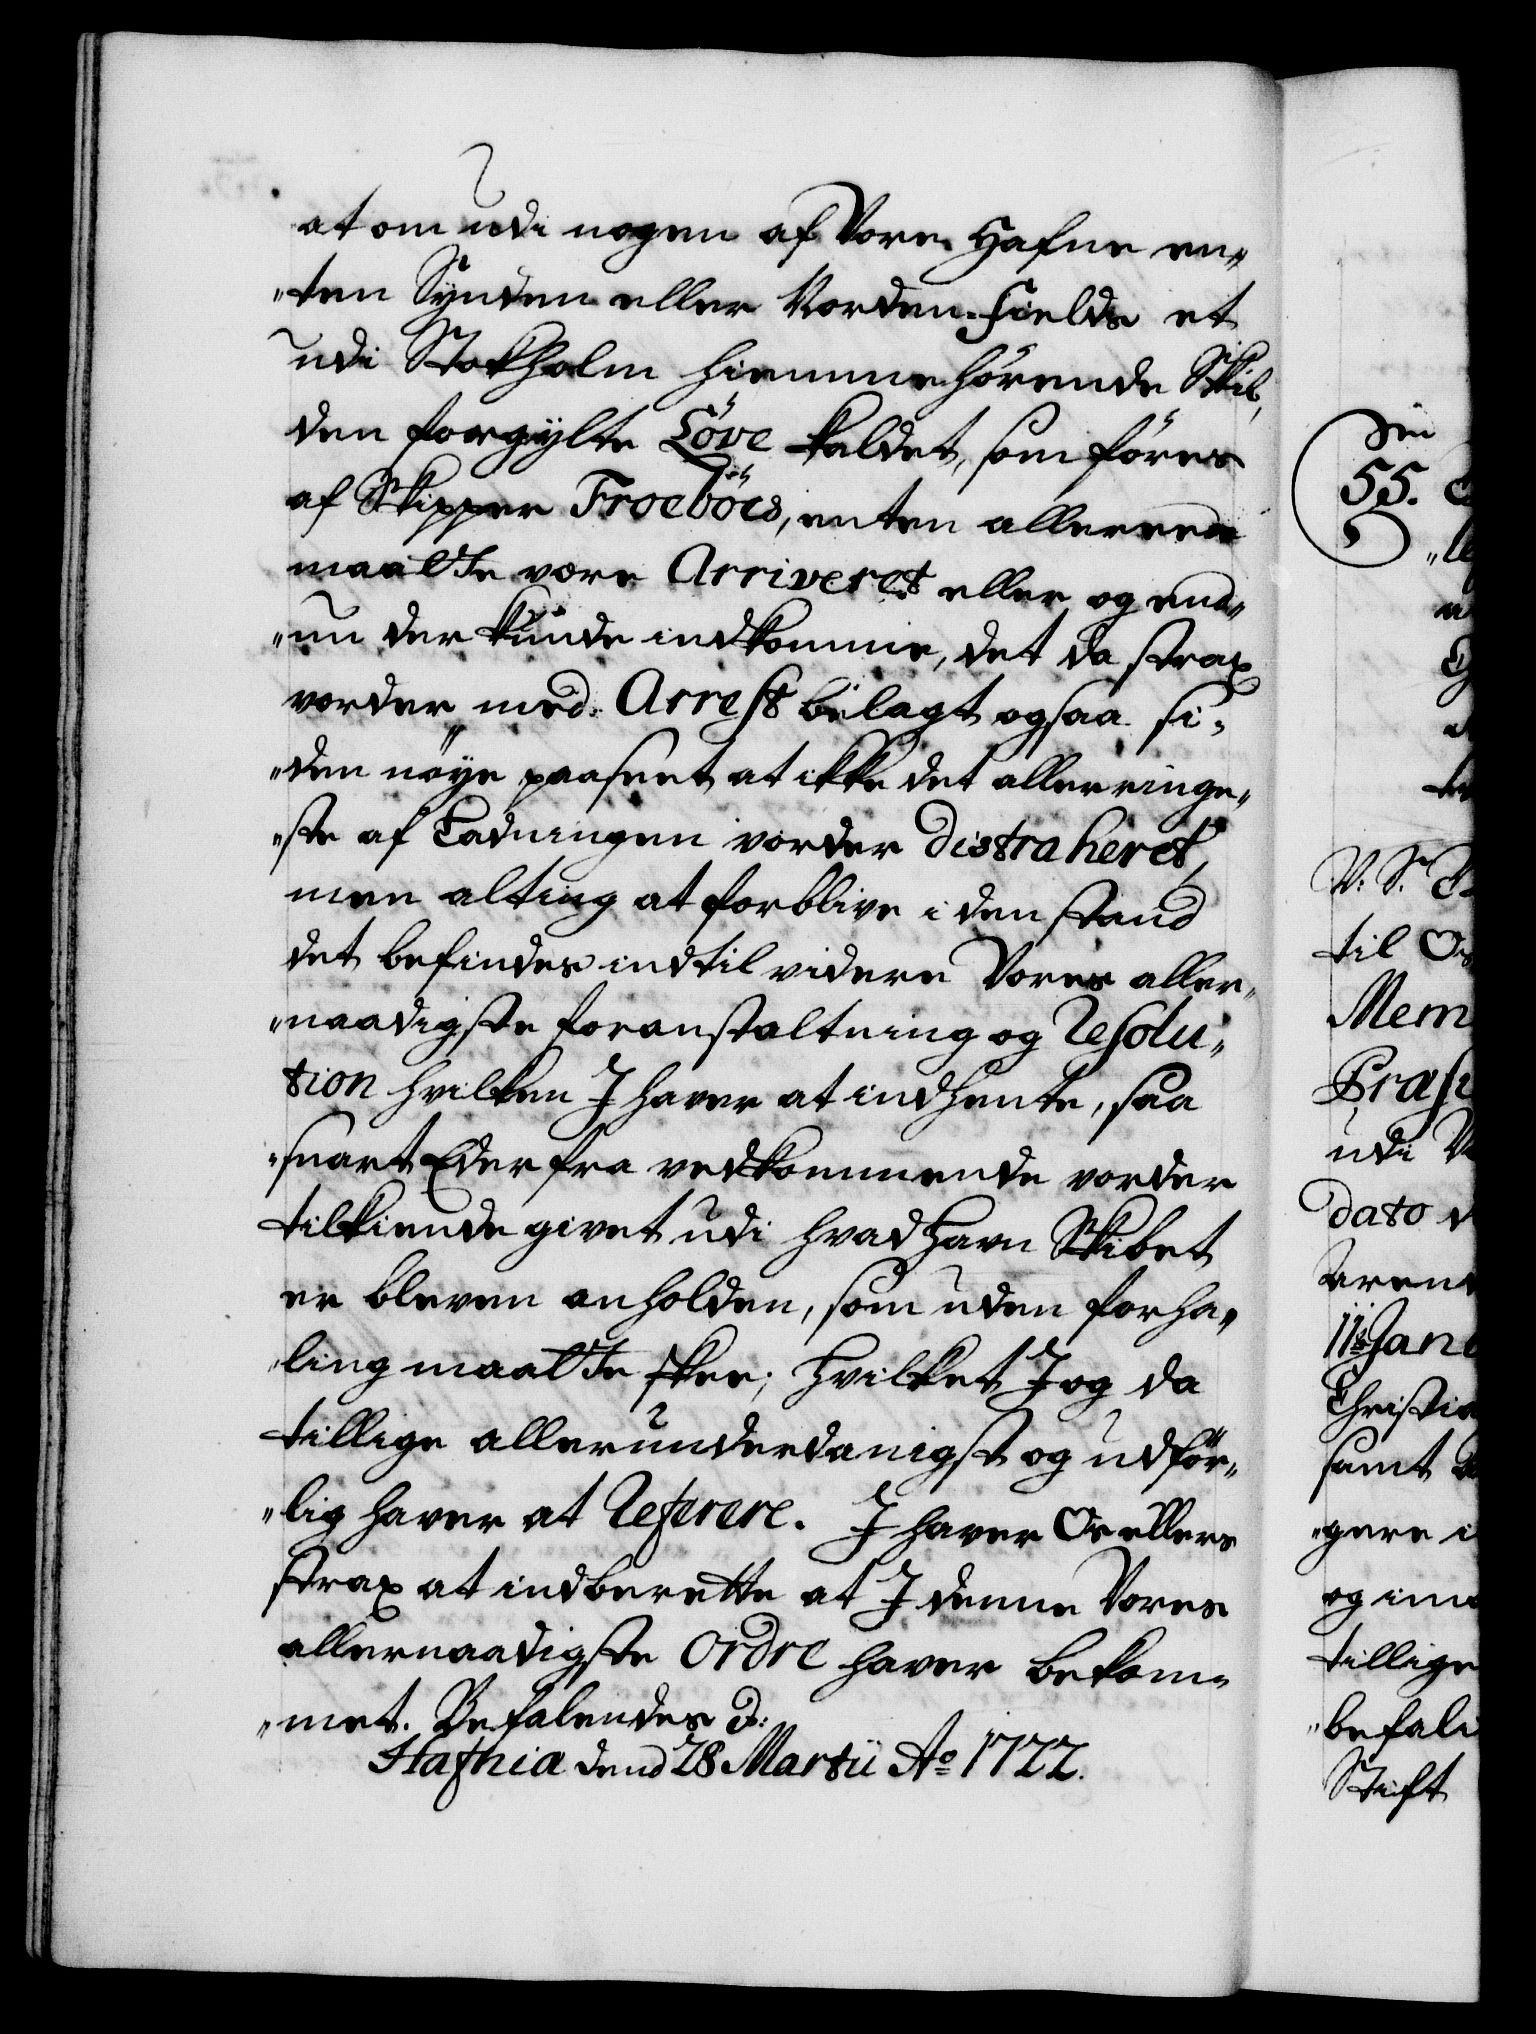 at om udi nogen af Vore Hafne en„
„ten Synden eller Norden-fields et
udi Stokholm hiemmehörende Skib,
den forgylte Löve kaldet, som föres
af Skipper Froeböes, enten allerede
maatte være Arriveret eller og end„
„nu der kunde indkomme, det da strax
vorder med Arrest belagt ogsaa si„
„den nöye paaseet at ikke det allerringe„
„ste af Ladningen vorder distraheret,
men alting at forblive i den stand
det befindes indtil videre Vores aller„
„naadigste foranstaltning og Resolu„
tion hvilken I haver at indhente, saa
snart Eder fra vedkommende vorder
tilkiende givet udi hvad Havn Skibet
er bleven anholden, som uden forha„
„ling maatte skee; hvilket I og da
tillige allerunderdanigst og udför„
„lig haver at Referere. I haver Os ellers
strax at indberette at I denne Vores
allernaadigste Ordre haver bekom„
„met. Befalendes d:
Hafnia dend 28 Martii Ao 1722.
55.
V. S. T
til Os
Mem
Præsi
udi V
dato d
Aren
11te Janu
Christia
samt
„gere i
og im
tillige
„befal
Stift